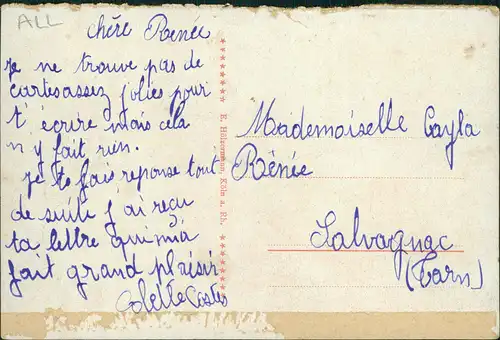 ALL
chère Renée
Je ne trouve pas de
cartes assez jolies pour
t'écrire mais cela
n y fait rien.
Je te fais reponse tout
de suite j ai reçu
ta lettre qui m'a
fait grand plaisir
Colette Costes
E. Hölzermann, Köln a. Rh.
Mademoiselle Cayla
Rénée
Salvagnac
(Tarn)